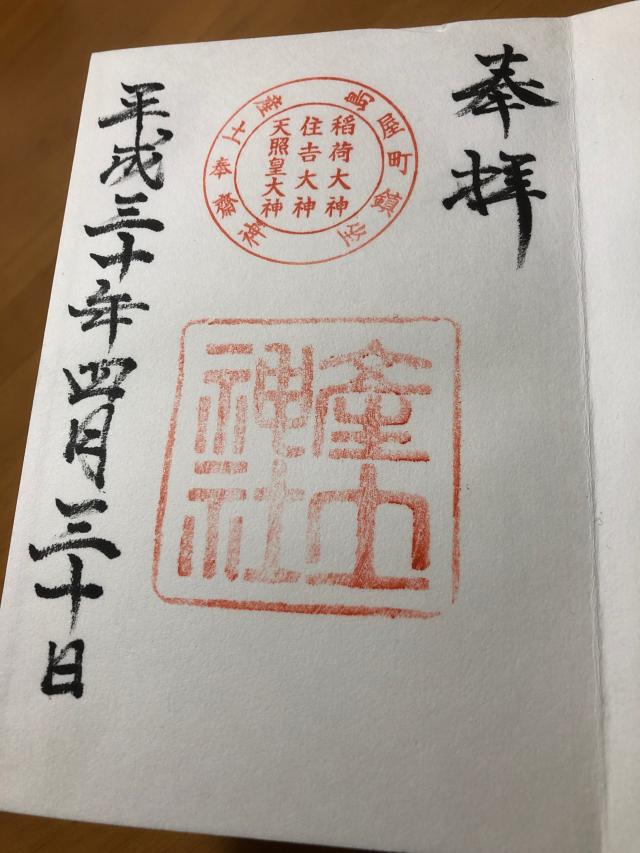 奉拝
屋町鎮座
産土奉齋神
稲荷大神
住吉大神
天照皇大神
産土
神社
平成三十年四月三十日